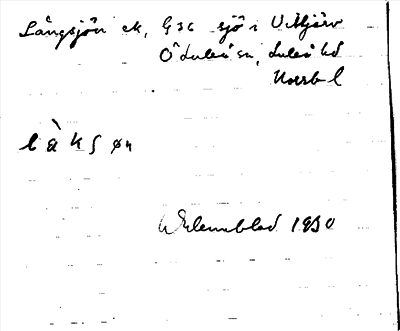 Långsjön ek, G36 sjö i U.Mjörv
Ö Luleå sn, Luleå hd
Norrb l
l à k ʃ ø n
Wennblad 1930